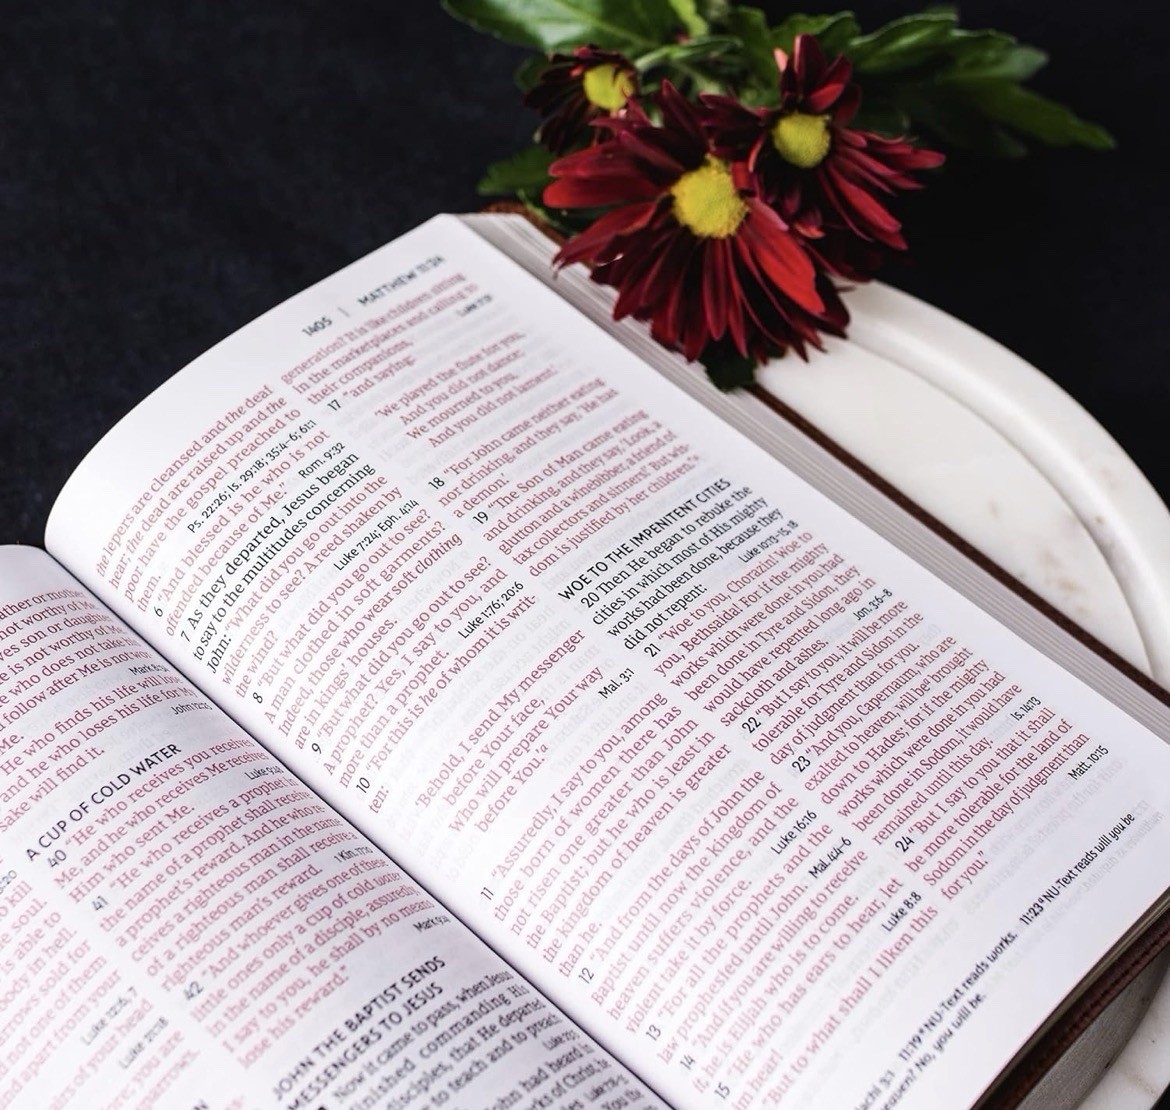 ather or mother
not worthy of Me.
ves son or daughter
e is not worthy of Me.
who does not take his
follow after Me is not wor
Mark 8:34
He who finds his life will lose
and he who loses his life for My
sake will find it.
John 12:25
A CUP OF COLD WATER
40 "He who receives you receives
Me, and he who receives Me receives
Him who sent Me.
Luke 9:48
41 "He who receives a prophet in
the name of a prophet shall receive
a prophet's reward. And he who re-
ceives a righteous man in the name
of a righteous man shall receive a
righteous man's reward.
1 Kin. 17:10
42 "And whoever gives one of these
little ones only a cup of cold water
in the name of a disciple, assuredly,
I say to you, he shall by no means
lose his reward."
Mark 9:41
JOHN THE BAPTIST SENDS
MESSENGERS TO JESUS
Now it came to pass, when Jesus
finished commanding His
disciples, that He departed
to teach and to preach
John had heard in
works of Christ, he
1405 | MATTHEW 11:24
the lepers are cleansed and the deaf
hear; the dead are raised up and the
poor have the gospel preached to
them.
Ps. 22:26; Is. 29:18; 35:4–6; 61:1
6 "And blessed is he who is not
offended because of Me."
Rom. 9:32
7 As they departed, Jesus began
to say to the multitudes concerning
John: "What did you go out into the
wilderness to see? A reed shaken by
the wind?
Luke 7:24; Eph. 4:14
8 "But what did you go out to see?
A man clothed in soft garments?
Indeed, those who wear soft clothing
are in kings' houses.
9 "But what did you go out to see?
A prophet? Yes, I say to you, and
more than a prophet.
Luke 1:76; 20:6
10 "For this is he of whom it is writ-
ten:
'Behold, I send My messenger
before Your face,
Who will prepare Your way
before You.'
Mal. 3:1
11 "Assuredly, I say to you, among
those born of women there has
not risen one greater than John
the Baptist; but he who is least in
the kingdom of heaven is greater
than he.
12 "And from the days of John the
Baptist until now the kingdom of
heaven suffers violence, and the
violent take it by force.
Luke 16:16
13 "For all the prophets and the
law prophesied until John.
Mal. 4:4–6
14 "And if you are willing to receive
it, he is Elijah who is to come.
15 "He who has ears to hear, let
him hear!
Luke 8:8
"But to what shall I liken this
generation? It is like children sitting
in the marketplaces and calling to
their companions,
17 "and saying:
'We played the flute for you,
And you did not dance;
We mourned to you,
And you did not lament.'
18 "For John came neither eating
nor drinking, and they say, 'He has
a demon.'
19 "The Son of Man came eating
and drinking, and they say, 'Look, a
glutton and a winebibber, a friend of
tax collectors and sinners!' But wis-
dom is justified by her children."
WOE TO THE IMPENITENT CITIES
20 Then He began to rebuke the
cities in which most of His mighty
works had been done, because they
did not repent:
Luke 10:13–15, 18
21 "Woe to you, Chorazin! Woe to
you, Bethsaida! For if the mighty
works which were done in you had
been done in Tyre and Sidon, they
would have repented long ago in
sackcloth and ashes.
Jon. 3:6–8
22 "But I say to you, it will be more
tolerable for Tyre and Sidon in the
day of judgment than for you.
23 "And you, Capernaum, who are
exalted to heaven, will be brought
down to Hades; for if the mighty
works which were done in you had
been done in Sodom, it would have
remained until this day.
Is. 14:13
24 "But I say to you that it shall
be more tolerable for the land of
Sodom in the day of judgment than
for you."
Matt. 10:15
11:19 NU-Text reads works. 11:23 NU-Text reads will you be
heaven? No, you will be.